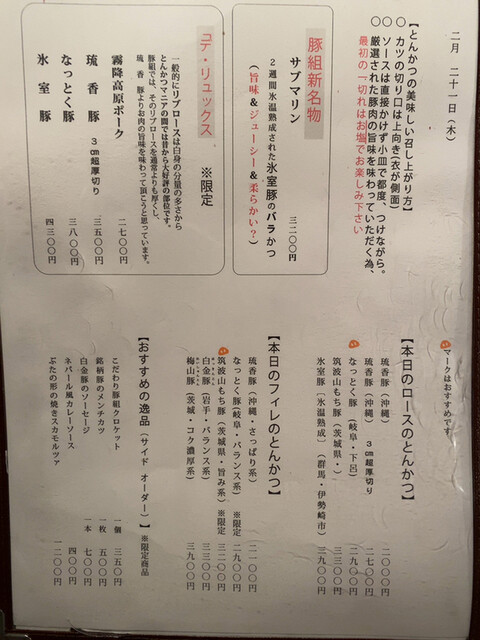 二月　二十一日（木）
【とんかつの美味しい召し上がり方】
○　カツの切り口は上向き（衣が側面）
○　ソースは直接かけず小皿で都度、つけながら。
○　厳選された豚肉の旨味を味わっていただく為、
最初の一切れはお塩でお楽しみ下さい
豚組新名物
サブマリン　三二〇〇円
２週間氷温熟成された氷室豚のバラかつ
（旨味＆ジューシー＆柔らかい？）
コテ・リュックス　※限定
一般的にリブロースは白身の分量の多さから
とんかつマニアの間では昔から大好評の部位です。
豚組では、そのリブロースを通常よりも厚くし、
琉香　豚よりお肉の旨味を味わって頂こうと思っています。
霧降高原ポーク　二七〇〇円
琉香豚　３㎝超厚切り　三五〇〇円
なっとく豚　三八〇〇円
氷室豚　四三〇〇円
マークはおすすめです。
【本日のロースのとんかつ】
琉香豚（沖縄）　二〇〇〇円
琉香豚（沖縄）　３㎝超厚切り　二七〇〇円
なっとく豚（岐阜・下呂）　二九〇〇円
筑波山もち豚（茨城県・）　三三〇〇円
氷室豚（氷温熟成）（群馬・伊勢崎市）　三九〇〇円
【本日のフィレのとんかつ】
琉香豚（沖縄・さっぱり系）　二一〇〇円
なっとく豚（岐阜・バランス系）　※限定　二九〇〇円
筑波山もち豚（茨城県・旨み系）※限定　三二〇〇円
白金豚（岩手・バランス系）　三三〇〇円
梅山豚（茨城・コク濃厚系）　三九〇〇円
【おすすめの逸品（サイド　オーダー）】※限定商品
こだわり豚組クロケット　一個　三五〇円
銘柄豚のメンチカツ　一枚　五〇〇円
白金豚のソーセージ　一本　七〇〇円
ネパール風カレーソース　四〇〇円
ぶたの形の焼きスカモルツァ　一二〇〇円